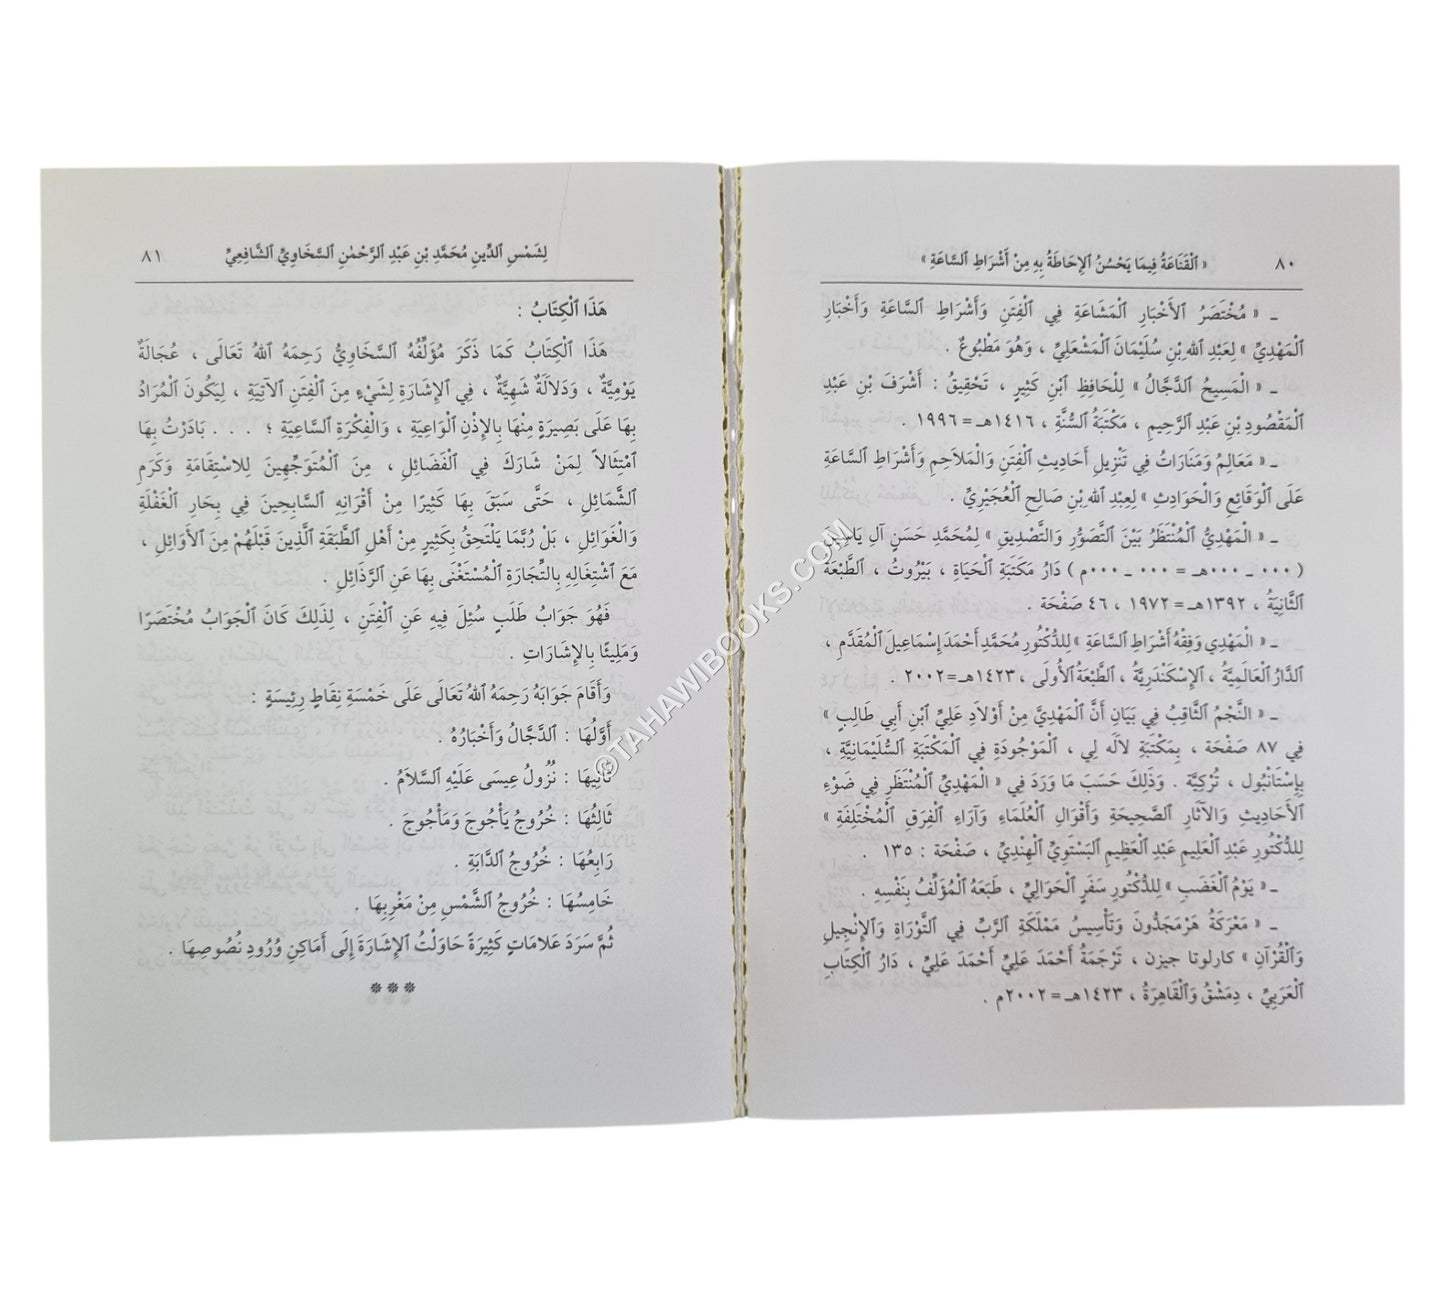 ٨٠ « ٱلْقَنَاعَةُ فِيمَا يَحْسُنُ ٱلإِحَاطَةُ بِهِ مِنْ أَشْرَاطِ ٱلسَّاعَةِ »
ـ « مُخْتَصَرُ ٱلأَخْبَارِ ٱلْمَشَاعَةِ فِي ٱلْفِتَنِ وَأَشْرَاطِ ٱلسَّاعَةِ وَأَخْبَارِ
ٱلْمَهْدِيِّ » لِعَبْدِ ٱللهِ بْنِ سُلَيْمَانَ ٱلْمَشْعَلِيِّ ، وَهُوَ مَطْبُوعٌ .
ـ « ٱلْمَسِيحُ ٱلدَّجَّالُ » لِلْحَافِظِ ٱبْنِ كَثِيرٍ ، تَحْقِيقُ : أَشْرَفَ بْنِ عَبْدِ
ٱلْمَقْصُودِ بْنِ عَبْدِ ٱلرَّحِيمِ ، مَكْتَبَةُ ٱلسُّنَّةِ ، ١٤١٦هـ = ١٩٩٦ .
ـ « مَعَالِمُ وَمَنَارَاتُ فِي تَنْزِيلِ أَحَادِيثِ ٱلْفِتَنِ وَٱلْمَلَاحِمِ وَأَشْرَاطِ ٱلسَّاعَةِ
عَلَى ٱلْوَقَائِعِ وَٱلْحَوَادِثِ » لِعَبْدِ ٱللهِ بْنِ صَالِحٍ ٱلْعُجَيْرِيِّ .
ـ « ٱلْمَهْدِيُّ ٱلْمُنْتَظَرُ بَيْنَ ٱلتَّصَوُّرِ وَٱلتَّصْدِيقِ » لِمُحَمَّدِ حَسَنٍ آلِ يَاسِينَ
( ٠٠٠ ـ ٠٠٠هـ = ٠٠٠ ـ ٠٠٠م ) دَارُ مَكْتَبَةِ ٱلْحَيَاةِ ، بَيْرُوتُ ، ٱلطَّبْعَةُ
ٱلثَّانِيَةُ ، ١٣٩٢هـ = ١٩٧٢ ، ٤٦ صَفْحَة .
ـ « ٱلْمَهْدِي وَفِقْهُ أَشْرَاطِ ٱلسَّاعَةِ » لِلدُّكْتُورِ مُحَمَّدِ أَحْمَدَ إِسْمَاعِيلَ ٱلْمُقَدَّمِ ،
ٱلدَّارُ ٱلْعَالَمِيَّةُ ، ٱلإِسْكَنْدَرِيَّةُ ، ٱلطَّبْعَةُ ٱلأُولَى ، ١٤٢٣هـ=٢٠٠٢ .
ـ « ٱلنَّجْمُ ٱلثَّاقِبُ فِي بَيَانِ أَنَّ ٱلْمَهْدِيَّ مِنْ أَوْلَادِ عَلِيِّ ٱبْنِ أَبِي طَالِبٍ »
فِي ٨٧ صَفْحَة ، بِمَكْتَبَةِ لَالَه لِي ، ٱلْمَوْجُودَةِ فِي ٱلْمَكْتَبَةِ ٱلسُّلَيْمَانِيَّةِ ،
بِإِسْتَانْبُول ، تُرْكِيَّة . وَذَلِكَ حَسَبَ مَا وَرَدَ فِي « ٱلْمَهْدِيِّ ٱلْمُنْتَظَرِ فِي ضَوْءِ
ٱلأَحَادِيثِ وَٱلآثَارِ ٱلصَّحِيحَةِ وَأَقْوَالِ ٱلْعُلَمَاءِ وَآرَاءِ ٱلْفِرَقِ ٱلْمُخْتَلِفَةِ »
لِلدُّكْتُورِ عَبْدِ ٱلْعَلِيمِ عَبْدِ ٱلْعَظِيمِ ٱلْبَسْتَوِيِّ ٱلْهِنْدِيِّ ، صَفْحَة : ١٣٥ .
ـ « يَوْمُ ٱلْغَضَبِ » لِلدُّكْتُورِ سَفَرٍ ٱلْحَوَالِيِّ ، طَبَعَهُ ٱلْمُؤَلِّفُ بِنَفْسِهِ .
ـ « مَعْرَكَةُ هَرْمَجَدُّونَ وَتَأْسِيسُ مَمْلَكَةِ ٱلرَّبِّ فِي ٱلتَّوْرَاةِ وَٱلإِنْجِيلِ
وَٱلْقُرْآنِ » كارلوتا جيزن ، تَرْجَمَةُ أَحْمَدَ عَلِيِّ أَحْمَدَ عَلِيٍّ ، دَارُ ٱلْكِتَابِ
ٱلْعَرَبِيِّ ، دِمَشْقُ وَٱلْقَاهِرَةُ ، ١٤٢٣هـ = ٢٠٠٢م .
لِشَمْسِ ٱلدِّينِ مُحَمَّدِ بْنِ عَبْدِ ٱلرَّحْمٰنِ ٱلسَّخَاوِيِّ ٱلشَّافِعِيِّ ٨١
هَذَا ٱلْكِتَابُ :
هَذَا ٱلْكِتَابُ كَمَا ذَكَرَ مُؤَلِّفُهُ ٱلسَّخَاوِيُّ رَحِمَهُ ٱللهُ تَعَالَى ، عُجَالَةٌ
يَوْمِيَّةٌ ، وَدَلَالَةٌ شَهِيَّةٌ ، فِي ٱلإِشَارَةِ لِشَيْءٍ مِنَ ٱلْفِتَنِ ٱلآتِيَةِ ، لِيَكُونَ ٱلْمُرَادُ
بِهَا عَلَى بَصِيرَةٍ مِنْهَا بِالإِذْنِ ٱلْوَاعِيَةِ ، وَٱلْفِكْرَةِ ٱلسَّاعِيَةِ ؛ . . . بَادَرْتُ بِهَا
ٱمْتِثَالاً لِمَنْ شَارَكَ فِي ٱلْفَضَائِلِ ، مِنَ ٱلْمُتَوَجِّهِينَ لِلاسْتِقَامَةِ وَكَرَمِ
ٱلشَّمَائِلِ ، حَتَّى سَبَقَ بِهَا كَثِيرًا مِنْ أَقْرَانِهِ ٱلسَّابِحِينَ فِي بِحَارِ ٱلْغَفْلَةِ
وَٱلْغَوَائِلِ ، بَلْ رُبَّمَا يَلْتَحِقُ بِكَثِيرٍ مِنْ أَهْلِ ٱلطَّبَقَةِ ٱلَّذِينَ قَبْلَهُمْ مِنَ ٱلأَوَائِلِ ،
مَعَ ٱشْتِغَالِهِ بِالتِّجَارَةِ ٱلْمُسْتَغْنَى بِهَا عَنِ ٱلرَّذَائِلِ .
فَهُوَ جَوَابُ طَلَبٍ سُئِلَ فِيهِ عَنِ ٱلْفِتَنِ ، لِذَلِكَ كَانَ ٱلْجَوَابُ مُخْتَصَرًا
وَمَلِيئًا بِالإِشَارَاتِ .
وَأَقَامَ جَوَابَهُ رَحِمَهُ ٱللهُ تَعَالَى عَلَى خَمْسَةِ نِقَاطٍ رَئِيسَةٍ :
أَوَّلُهَا : ٱلدَّجَّالُ وَأَخْبَارُهُ .
ثَانِيهَا : نُزُولُ عِيسَى عَلَيْهِ ٱلسَّلَامُ .
ثَالِثُهَا : خُرُوجُ يَأْجُوجَ وَمَأْجُوجَ .
رَابِعُهَا : خُرُوجُ ٱلدَّابَةِ .
خَامِسُهَا : خُرُوجُ ٱلشَّمْسِ مِنْ مَغْرِبِهَا .
ثُمَّ سَرَدَ عَلَامَاتٍ كَثِيرَةً حَاوَلْتُ ٱلإِشَارَةَ إِلَى أَمَاكِنِ وُرُودِ نُصُوصِهَا .
***
©TAHAWIBOOKS.COM